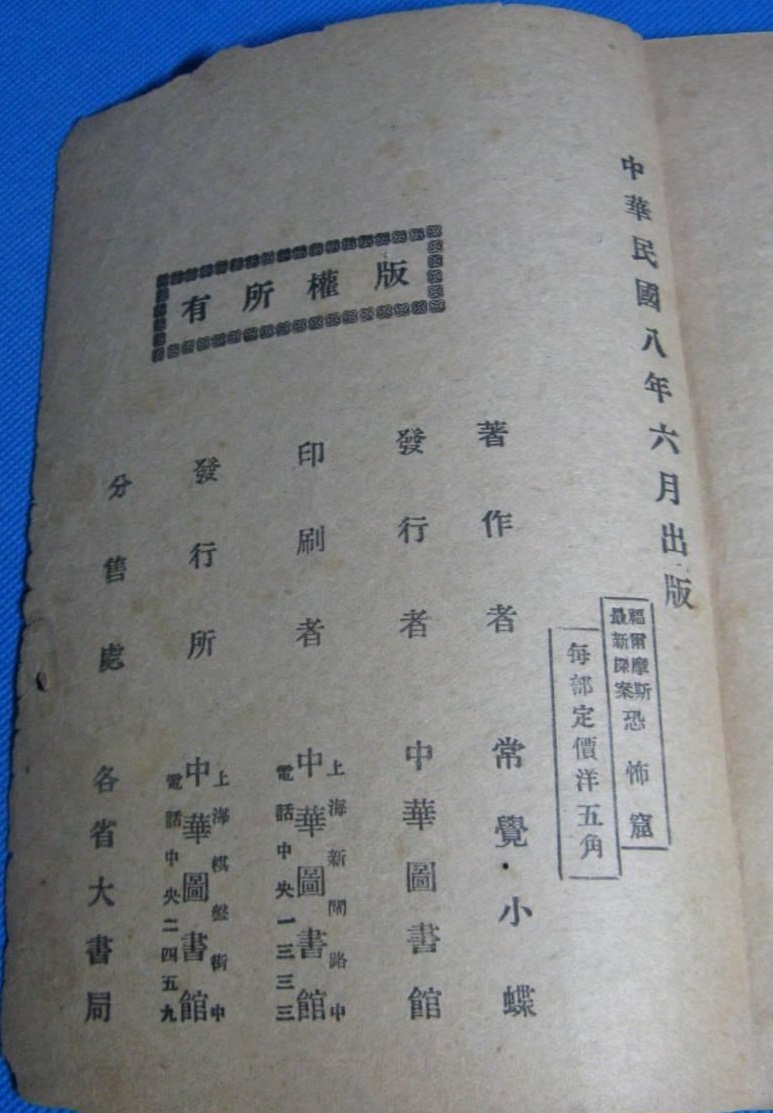 中華民國八年六月出版
福爾摩斯
最新探案
恐怖窟
每部定價洋五角
版權所有
著作者 常覺·小蝶
發行者 中華圖書館
印刷者
上海新閘路中
中華圖書館
電話中央一三三三
發行所
上海棋盤街中
中華圖書館
電話中央二四五九
分售處 各省大書局